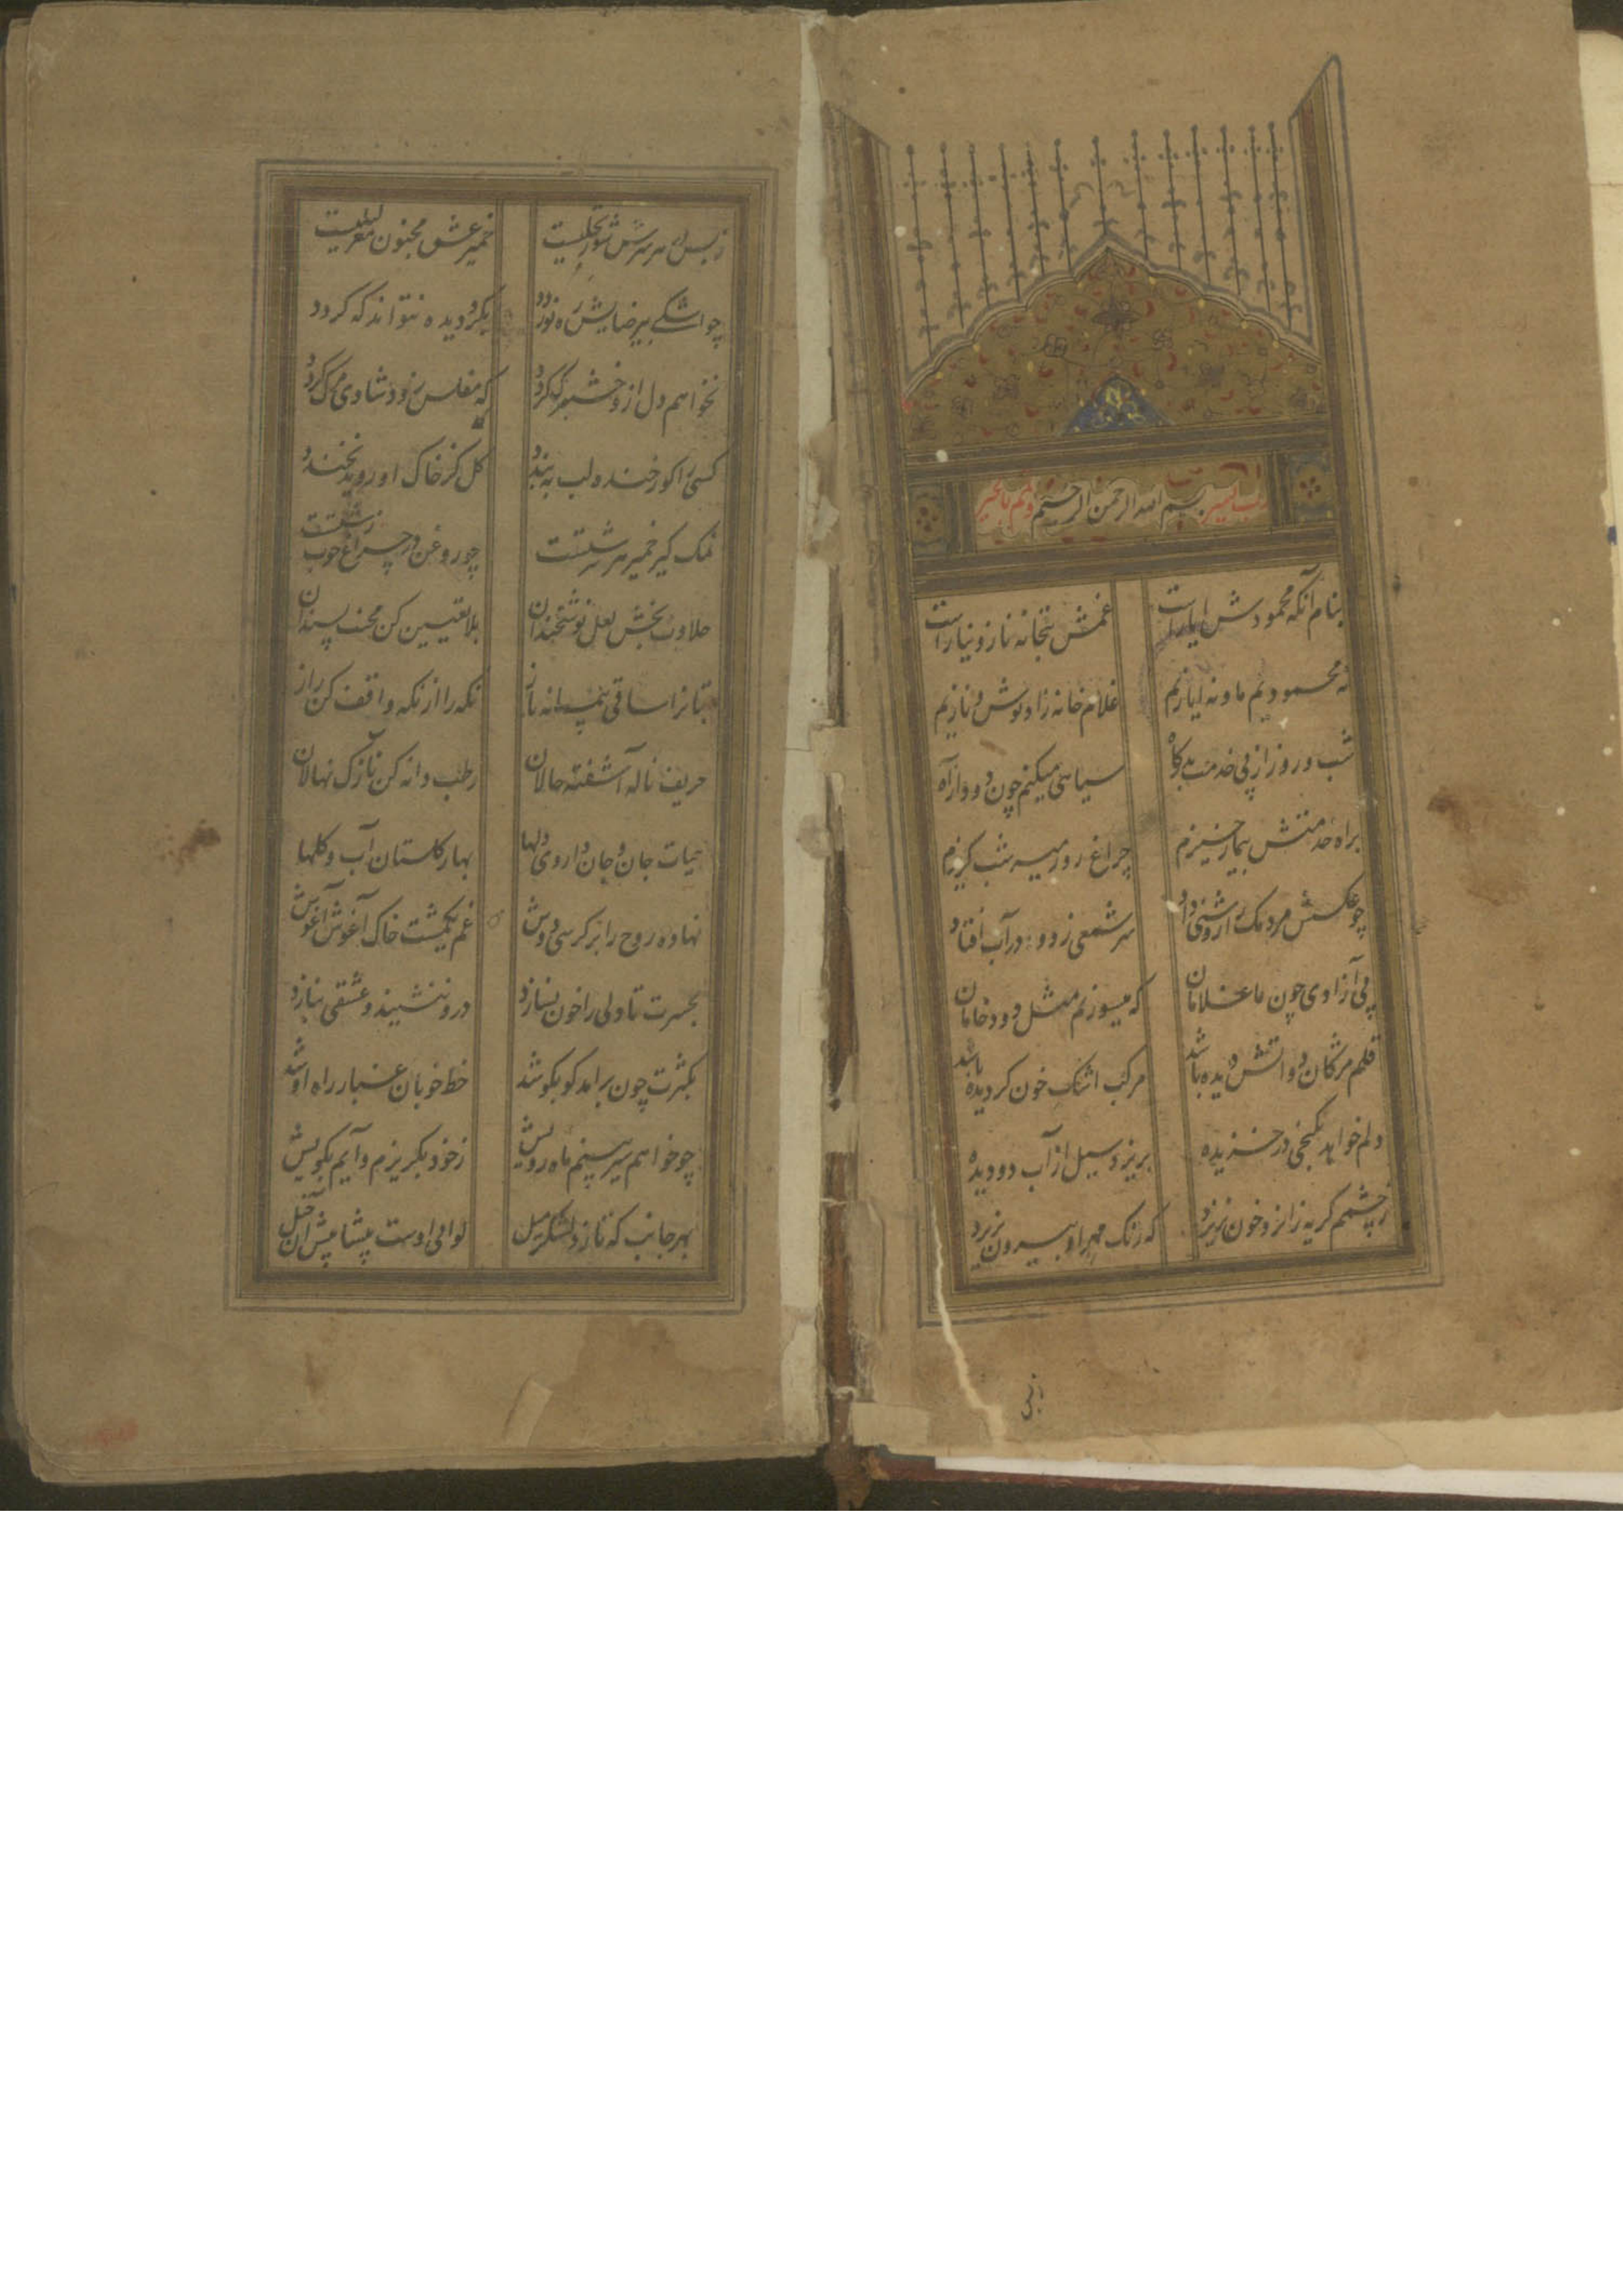 رب یسر بسم الله الرحمن الرحیم وتمم بالخیر
بنام آنکه محمودش ایازاست غمش بتخانه ناز و نیازاست
نه محمودیم ما و نه ایازیم غلام خانه زاد و ش نازیم
شب و روز از پی خدمت بدرگاه سیاهی میکنم چون دود از آه
براه خدمتش بیمار خیزم چراغ روز میرم شب گریزم
چو عکسش مردمک را روشنی داد سر شمعی زدود در آب افتاد
پی آزادی چون ما غلامان که میسوزیم مثل دود خامان
قلم مژکان دواتش دیده باشد مرکب اشک خون کردیده باشد
دلم خواهد بکنجی در خزیده بریزد سیل از آب دو دیده
زچشمم کریه زانرو خون نریزد که رنک مهر او بیرون نریزد
زبس
زبس در هر سرش شور تجلیست خمیر عشق مجنون مغز لیلیست
چو اشکی بیرضایش ره نوردد بکرد دیده نتواند که کردد
نخواهم دل ازو خشم کردد که مفلس زود شادی مرک کردد
کسی را کو زخنده لب به بندد کل کز خاک او روید نخندد
نمک کیر خمیر هر سرشتست چو روغن در چراغ خوب زشتست
حلاوت بخش لعل نوشخندان بلا تعیین کن محنت پسندان
بتانرا ساقی پیمانه ناز نکه را از نکه واقف کن راز
حریف ناله آشفته حالان رطب دانه کن نازک نهالان
حیات جان و جان داروی دلها بهار کلستان آب و کلها
نهاده روح را بر کرسی دوش غم یکمشت خاک آغوش آغوش
بحسرت تا دلی را خون نسازد درو ننشیند و عشقی نبازد
بکثرت چون برآمد کو بکو شد خط خوبان غبار راه او شد
چو خواهم سیر بینم ماه رویش زخود بکریزم و آیم بکویش
بهر جانب که تازد لشکر میل لوای اوست پیشاپیش آن خیل